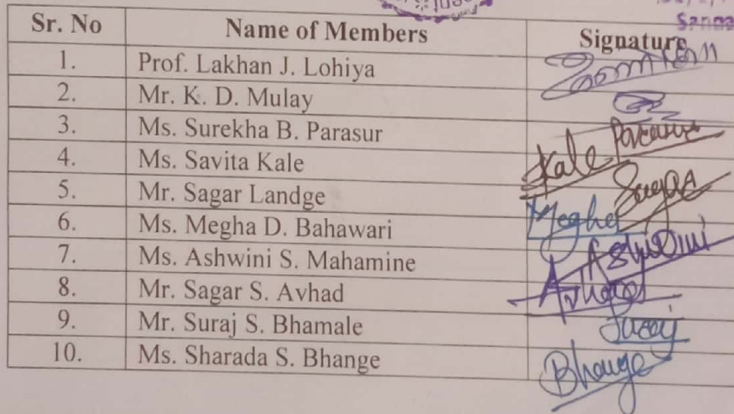 Sr. No Name of Members Signature
1. Prof. Lakhan J. Lohiya
2. Mr. K. D. Mulay
3. Ms. Surekha B. Parasur
4. Ms. Savita Kale Kale
5. Mr. Sagar Landge Sagar
6. Ms. Megha D. Bahawari Megha
7. Ms. Ashwini S. Mahamine Ashwini
8. Mr. Sagar S. Avhad Avhad
9. Mr. Suraj S. Bhamale Suraj
10. Ms. Sharada S. Bhange Bhange